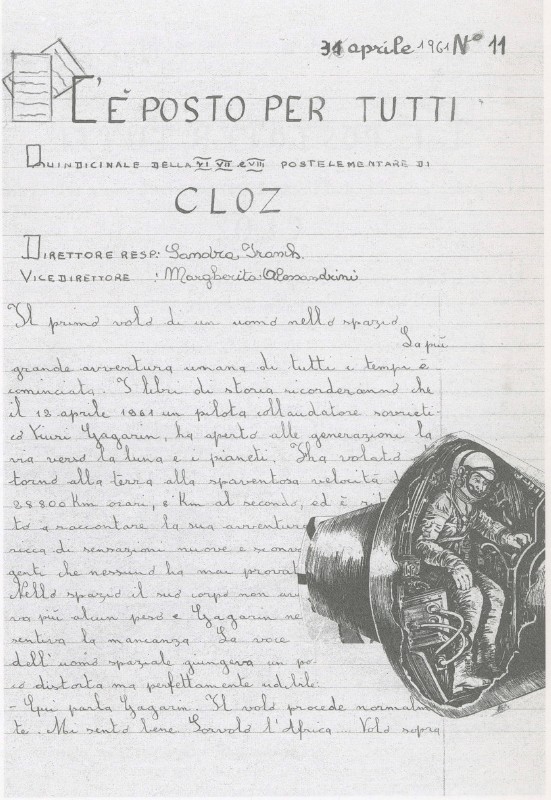 31 aprile 1961 N° 11
C'È POSTO PER TUTTI
QUINDICINALE DELLA VI VII e VIII POSTELEMENTARE DI
CLOZ
DIRETTORE RESP.: Sandra Franch
VICEDIRETTORE : Margherita Alessandrini
Il primo volo di un uomo nello spazio
La più
grande avventura umana di tutti i tempi è
cominciata. I libri di storia ricorderanno che
il 12 aprile 1961 un pilota collaudatore sovieti-
co Yuri Gagarin, ha aperto alle generazioni la
via verso la luna e i pianeti. Ha volato
torno alla terra alla spaventosa velocità
28800 Km orari, 8 Km al secondo, ed è
to a raccontare la sua avventura
ricca di sensazioni nuove e sconvo
genti che nessuno ha mai provat
Nello spazio il suo corpo non av
va più alcun peso e Gagarin ne
sentiva la mancanza. La voce
dell'uomo spaziale giungeva un po-
co distorta ma perfettamente udibile:
- Qui parla Gagarin. Il volo procede normalm
te. Mi sento bene Sorvolo l'Africa.... Volo sopra